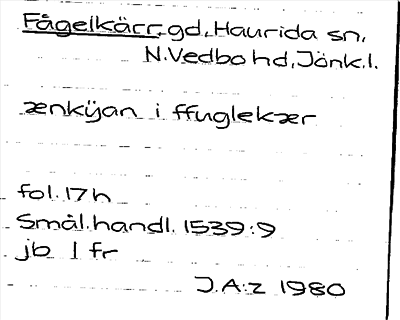 Fågelkärr, gd, Haurida sn,
N.Vedbo hd, Jönk.l.
ænkÿan i ffuglekær
fol. 17 h
Smål.handl. 1539:9
jb 1 fr
J.A:z 1980